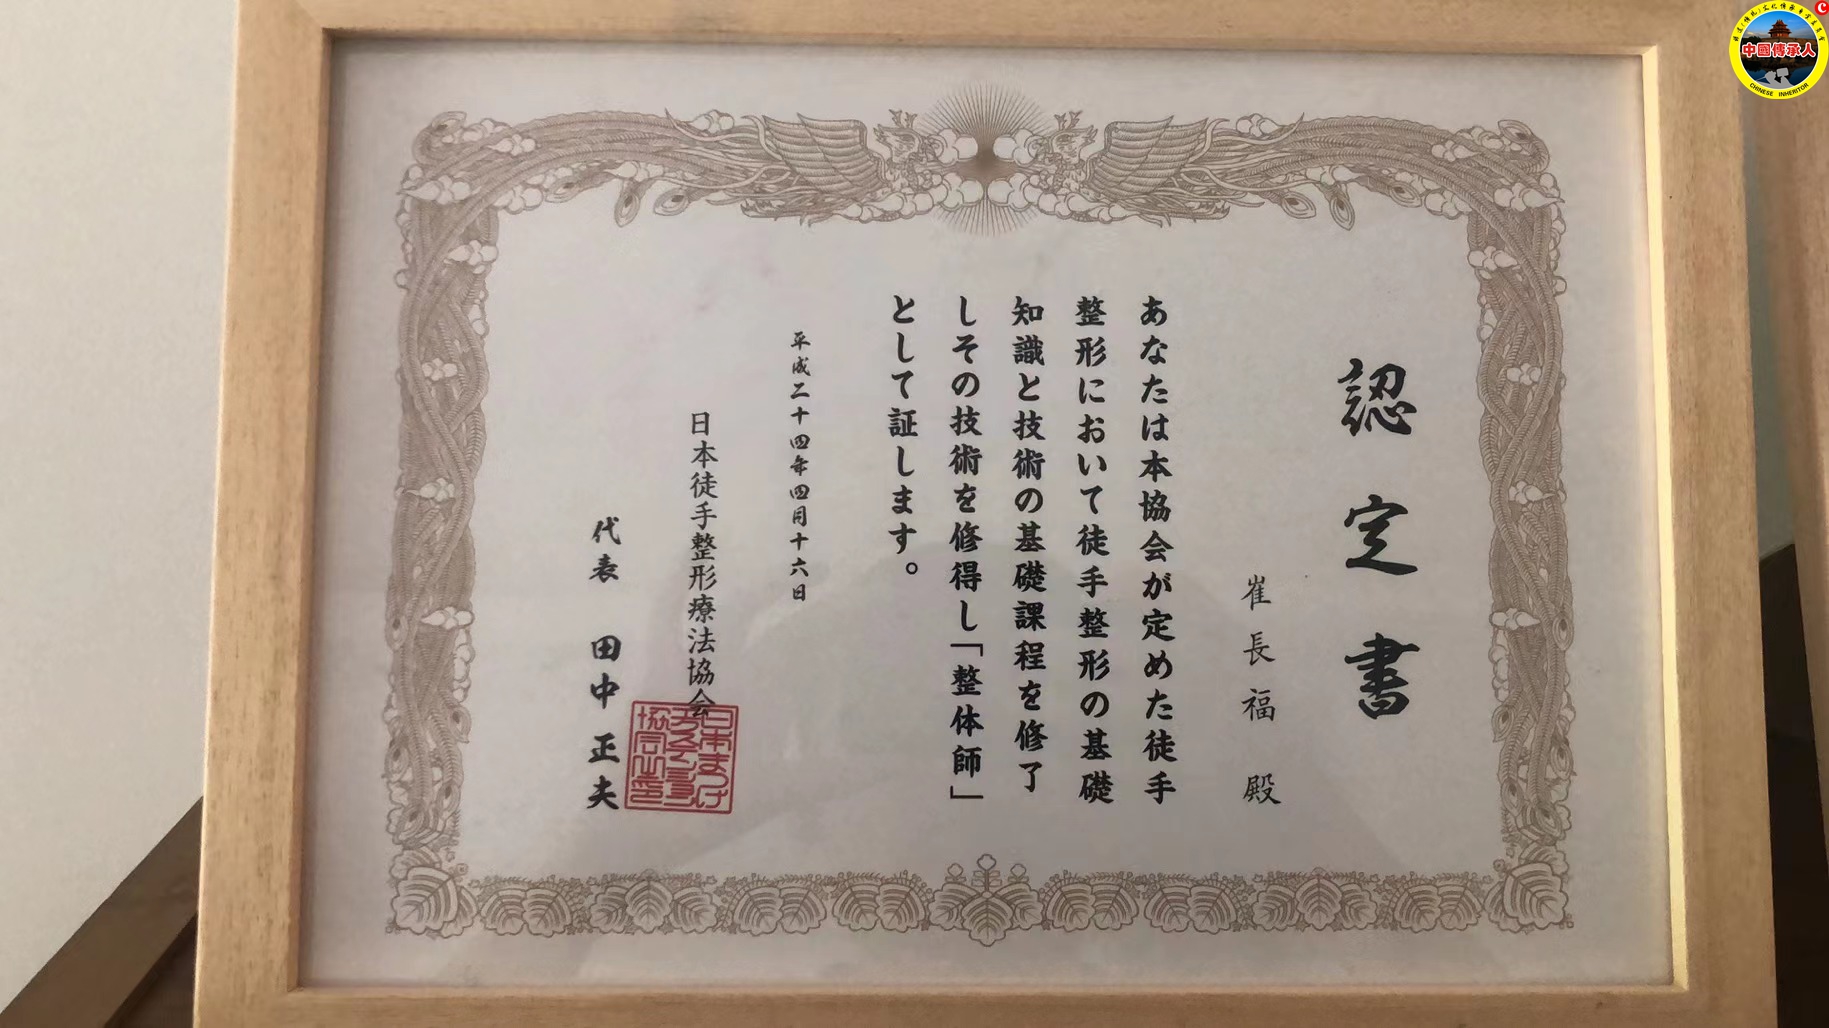 認定書
崔長福 殿
あなたは本協会が定めた徒手
整形において徒手整形の基礎
知識と技術の基礎課程を修了
しその技術を修得し「整体師」
として証します。
平成二十四年四月十六日
日本徒手整形療法協会
代表 田中正夫
中國傳承人
CHINESE INHERITOR
C